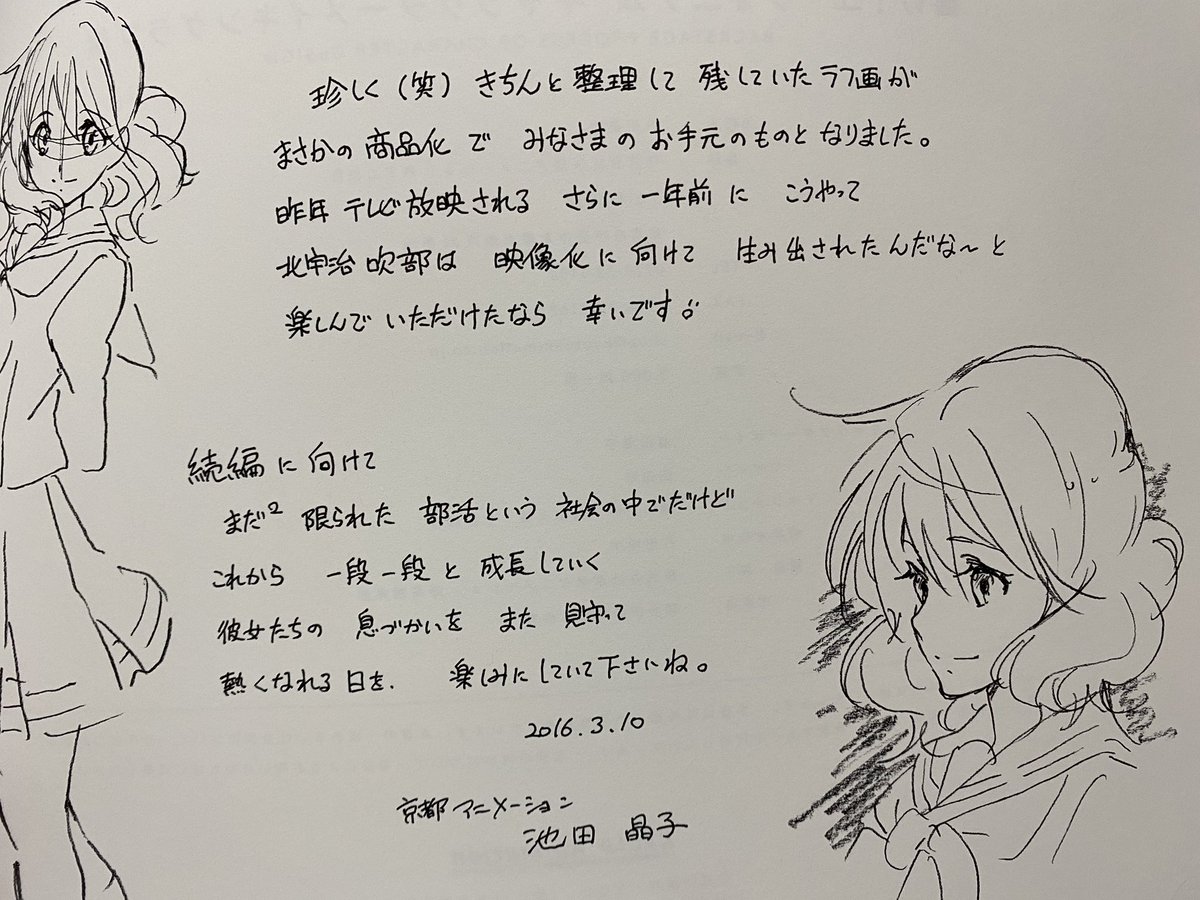 珍しく（笑）きちんと整理して 残していたラフ画が
まさかの商品化で みなさまのお手元のものとなりました。
昨年テレビ放映される さらに一年前に こうやって
北宇治吹部は 映像化に向けて 生み出されたんだな〜と
楽しんでいただけたなら 幸いです
続編に向けて
まだ² 限られた 部活という 社会の中でだけど
これから 一段一段と 成長していく
彼女たちの 息づかいを また 見守って
熱くなれる日を、 楽しみにしていて下さいね。
2016.3.10
京都アニメーション
池田 晶子